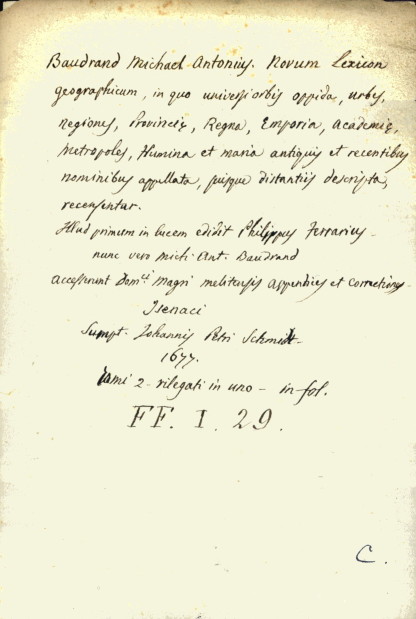 Baudrand Michael Antonius. Novum Lexicon
geographicum, in quo universi orbis oppida, urbes,
regiones, Provincię, Regna, Emporia, Academię,
Metropoles, Flumina et maria antiquis et recentibus
nominibus appellata, suisque distantiis descripta,
recensentur.
Illud primum in lucem edidit Philippus Ferrarius
nunc vero Mich. Ant. Baudrand
accesserunt Dom.ci Magri melitensis Appendices et Corrections
Isenaci
Sumpt. Johannis Petri Schmidt.
1677.
tomi 2 - rilegati in uno - in fol.
FF. I. 29.
C.